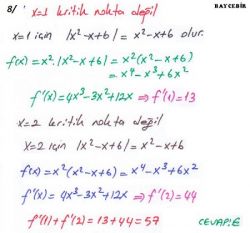 8/ x=1 kritik nokta değil
BAYCEBİR
x=1 için |x²-x+6| = x²-x+6 olur.
f(x) = x².|x²-x+6| = x²(x²-x+6)
= x⁴-x³+6x²
f'(x) = 4x³-3x²+12x ⇒ f'(1) = 13
x=2 kritik nokta değil
x=2 için |x²-x+6| = x²-x+6
f(x) = x²(x²-x+6) = x⁴-x³+6x²
f'(x) = 4x³-3x²+12x ⇒ f'(2) = 44
f'(1)+f'(2) = 13+44 = 57
CEVAP: E